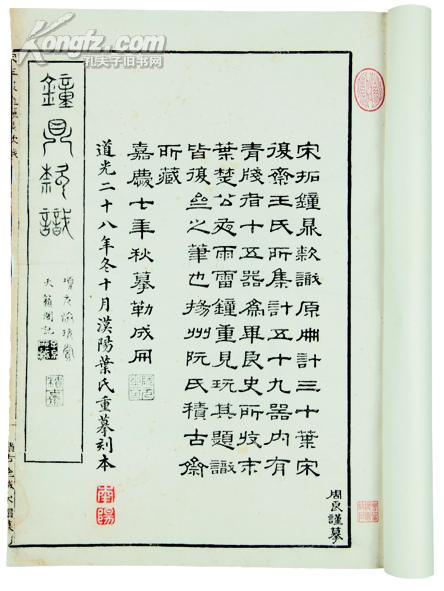 Kongfz.com
孔夫子旧书网
周良謹摹
宋拓鐘鼎款識原冊計三十葉宋
復齋王氏所集計五十九器內有
青牋者十五器為畢良史所收末
葉楚公夜雨雷鐘重見玩其題識
皆復亝之筆也揚州阮氏積古齋
所藏
嘉慶七年秋摹勒成冊
道光二十八年冬十月漢陽葉氏重摹刻本
南陽
鐘鼎款識
天籟閣記